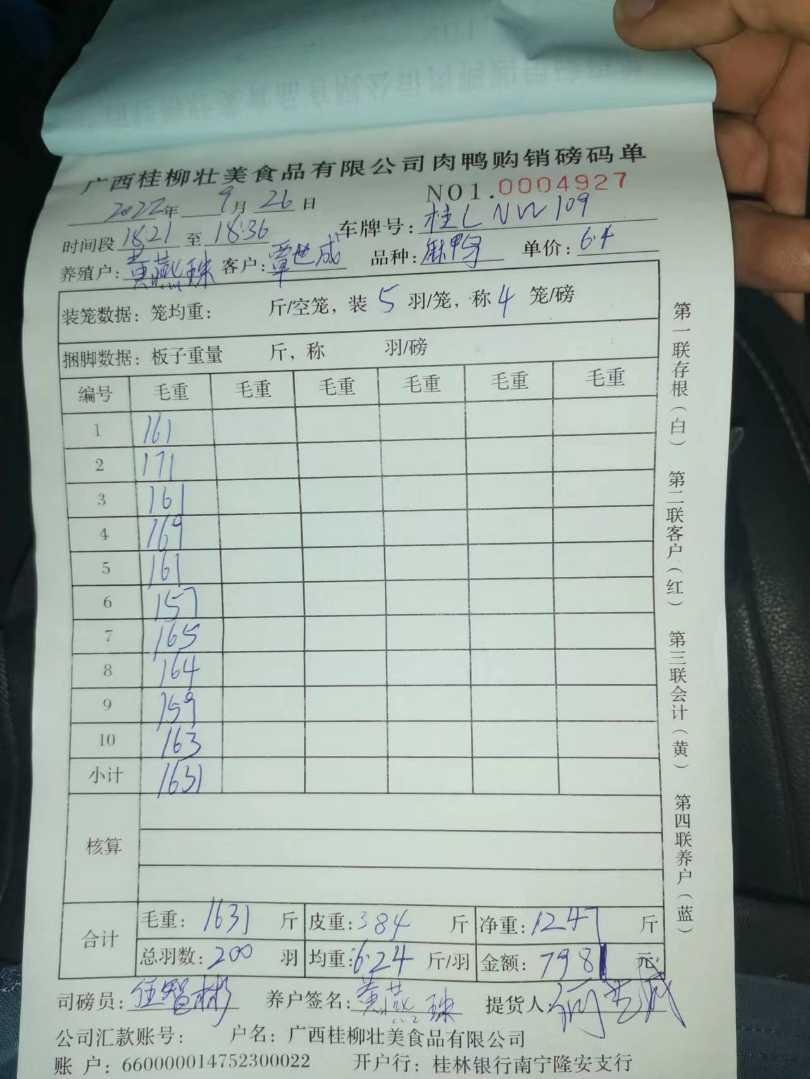 广西桂柳壮美食品有限公司肉鸭购销磅码单
NO1.0004927
2022年 9月 26日
时间段 18:21 至 18:36 车牌号: 桂L NW 109
养殖户: 黄燕珠 客户: 覃世成 品种: 麻鸭 单价: 6.4
装笼数据: 笼均重: 斤/空笼, 装 5 羽/笼, 称 4 笼/磅
捆脚数据: 板子重量 斤, 称 羽/磅
编号 毛重 毛重 毛重 毛重 毛重 毛重
1 161
2 171
3 161
4 169
5 161
6 157
7 165
8 164
9 159
10 163
小计 1631
核算
合计
毛重: 1631 斤 皮重: 384 斤 净重: 1247 斤
总羽数: 200 羽 均重: 6.24 斤/羽 金额: 7981 元
司磅员: 养户签名: 黄燕珠 提货人
公司汇款账号: 户名: 广西桂柳壮美食品有限公司
账 户: 660000014752300022 开户行: 桂林银行南宁隆安支行
第一联存根(白) 第二联客户(红) 第三联会计(黄) 第四联养户(蓝)